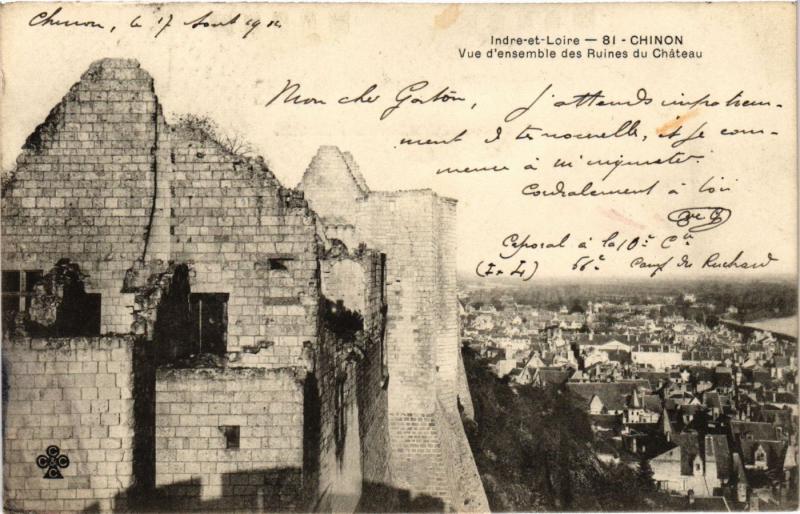 Chinon, le 17 Aout 1914
Indre-et-Loire — 81 - CHINON
Vue d'ensemble des Ruines du Château
Mon cher Gaston,
J'attends impatiem-
ment de te nouvelle, et je com-
mence à m'inquieter
Cordialement à toi
Caporal à la 10e Cie
(I-L) 66e Camp du Ruchard
C C C